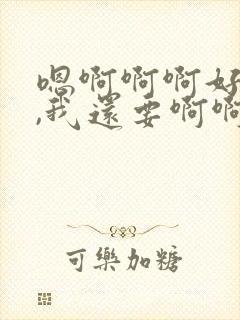 嗯啊啊啊好
,我还要啊啊
可樂加糖